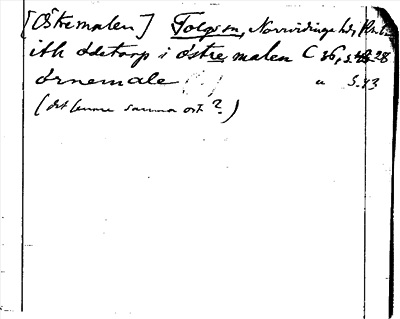 [Östremalen] Tolgs sn, Norrvidinge hd, Kr.
ith odetorp i östre malen C 26, s. 28
örnemale " S. 43
(det samma ort?)